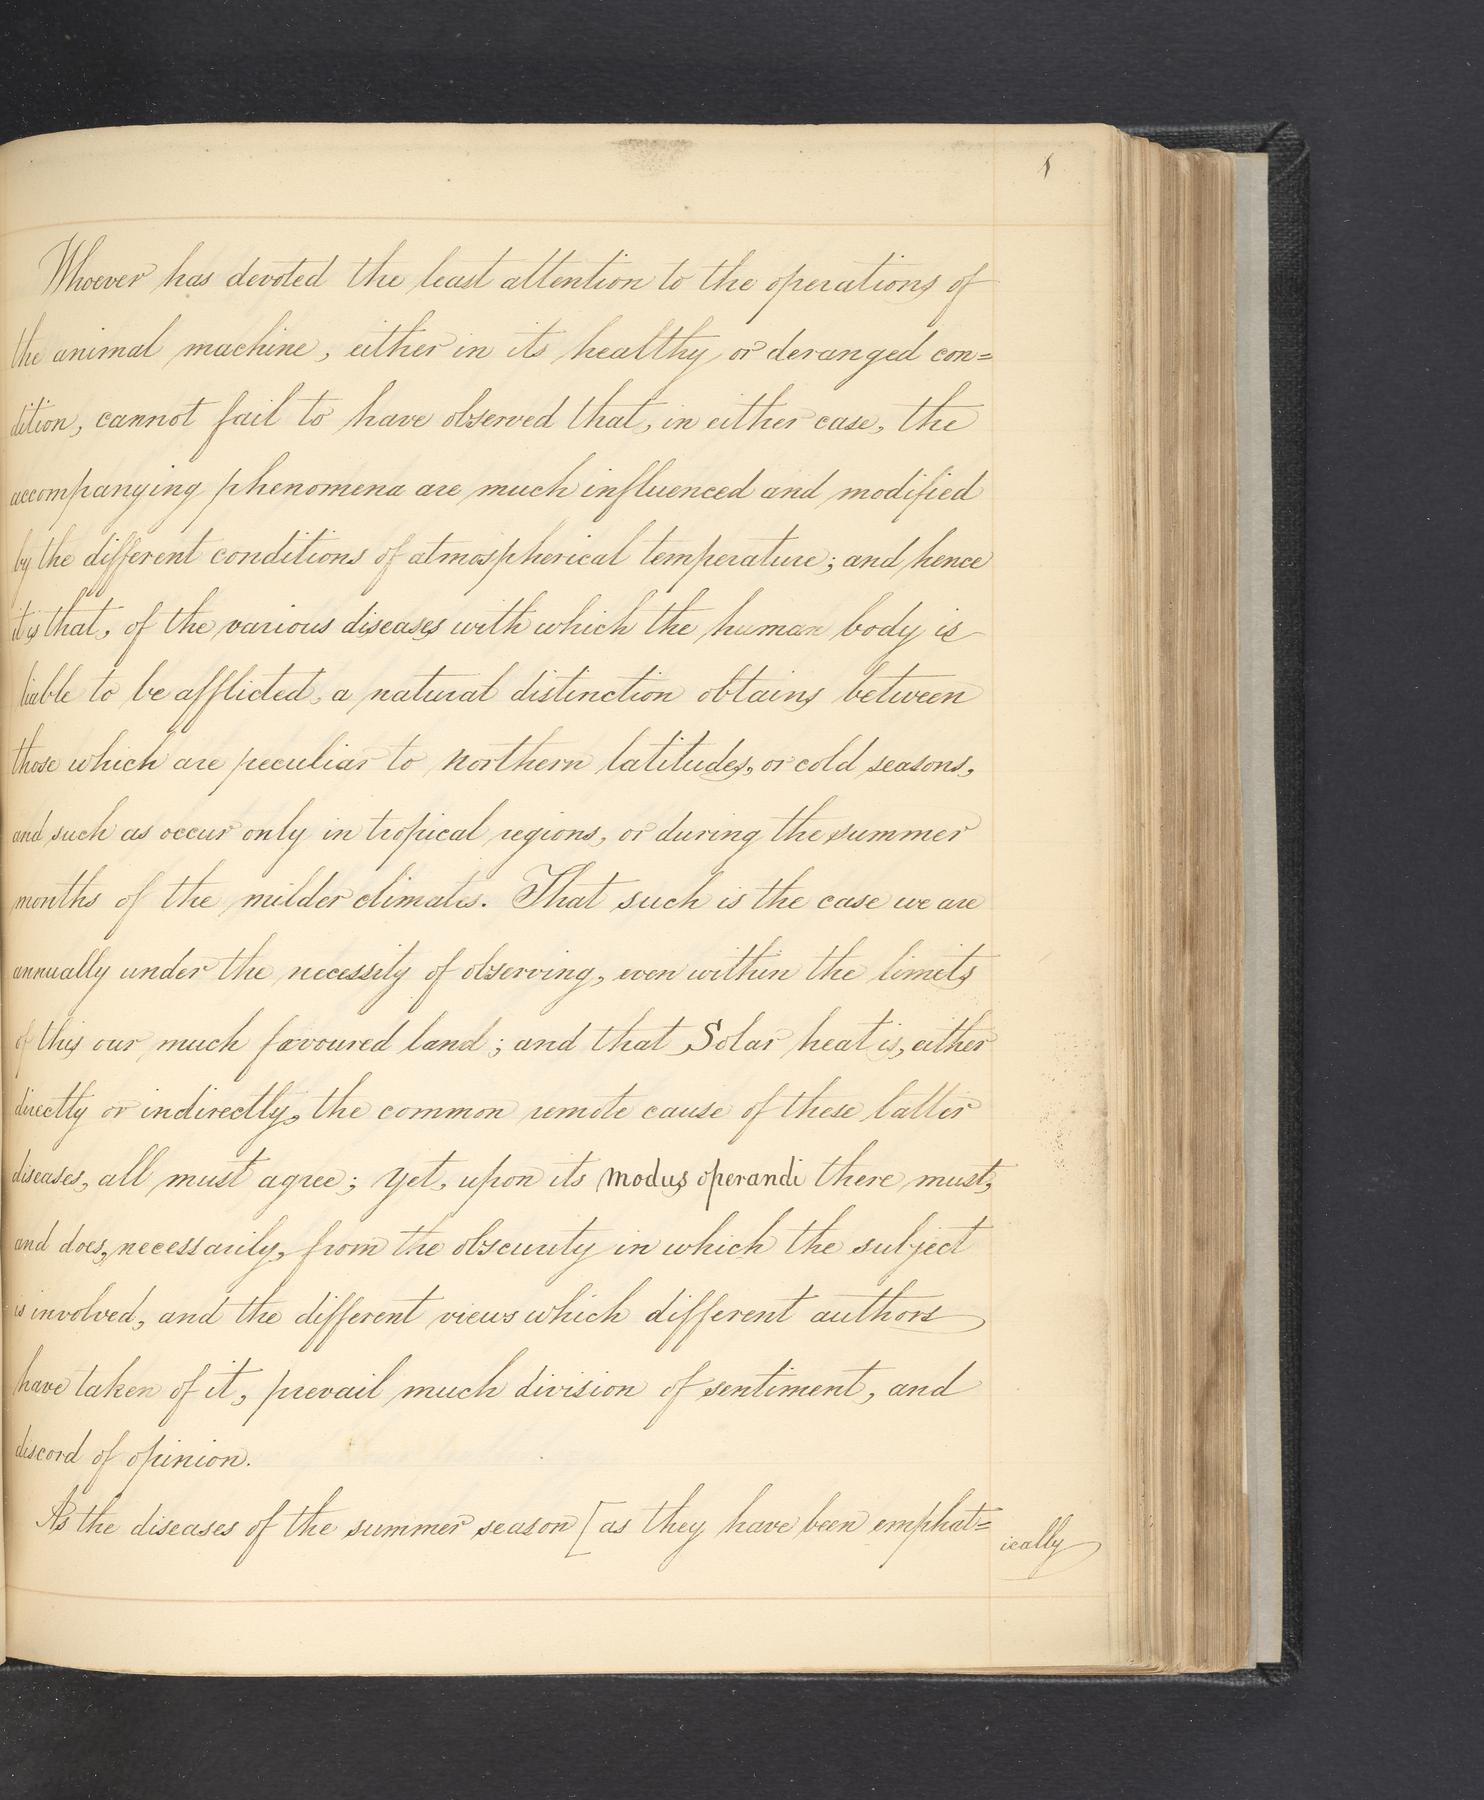 1
Whoever has devoted the least attention to the operations of
the animal machine, either in its healthy or deranged con=
dition, cannot fail to have observed that, in either case, the
accompanying phenomena are much influenced and modified
by the different conditions of atmospherical temperature; and hence
it is that, of the various diseases with which the human body is
liable to be afflicted, a natural distinction obtains between
those which are peculiar to northern latitudes, or cold seasons,
and such as occur only in tropical regions, or during the summer
months of the milder climates. That such is the case we are
annually under the necessity of observing, even within the limits
of this our much favoured land; and that Solar heat is, either
directly or indirectly, the common remote cause of these latter
diseases, all must agree; yet, upon its modus operandi there must,
and does, necessarily, from the obscurity in which the subject
is involved, and the different views which different authors
have taken of it, prevail much division of sentiment, and
discord of opinion.
As the diseases of the summer season [as they have been emphat=
ically